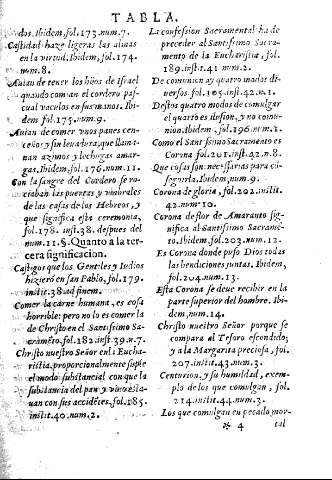 TABLA.
dos. Ibidem, fol. 173. num. 7.
Castidad haze ligeras las almas
en la virtud. Ibidem, fol. 174.
num. 8.
Auian de tener los hijos de Israel
quando comian el cordero pas-
cual vaculos en sus manos. Ibi-
dem, fol. 175. num. 9.
Auian de comer vnos panes cen-
ceños y sin leuadura, que llami-
nan azimos y lechugas amar-
gas. Ibidem, fol. 176. num. 11.
Con la sangre del Cordero se ro-
ciaban las puertas y vmbrales
de las casas de los Hebreos, y
que significa esta ceremonia,
fol. 178. inst. 38. despues del
num. 11. §. Quanto a la ter-
cera significacion.
Castigos que los Gentiles y Iudios
hizierõ en san Pablo, fol. 179.
instit. 38. ad finem.
Comer la carne humana, es cosa
horrible: pero no lo es comer la
de Christo en el Santissimo Sa-
cramẽto. fol. 182. inst. 39. n. 7.
Christo nuestro Señor en la Eucha-
ristia, proporcionalmente suple
el modo substancial con que la
substancia del pan y vino esta-
uan con sus accidẽtes, fol. 185.
instit. 40. num. 2.
La confession Sacramental ha de
preceder al Santissimo Sacra-
mento de la Eucharistia, fol.
189. inst. 41. num. 2.
De comunion ay quatro modos di-
uersos. fol. 195. inst. 42. n. 1.
Destos quatro modos de comulgar
el quarto es ilusion, y no comu-
nion. Ibidem, fol. 196. num. 1.
Como el Santissimo Sacramento es
Corona fol. 201. inst. 42. n. 8.
Que cosas son necessarias para cõ-
seguirla. Ibidem, num. 9.
Corona de gloria, fol. 202. instit.
42. num. 10.
Corona de flor de Amaranto sig-
nifica al Santissimo Sacramẽ-
to. Ibidem, fol. 203. num. 12.
Es Corona donde puso Dios todas
las bendiciones juntas. Ibidem,
fol. 204. num. 13.
Esta Corona se deue recibir en la
parte superior del hombre. Ibi-
dem, num. 14.
Christo nuestro Señor porque se
compara al Tesoro escondido;
y a la Margarita preciosa, fol.
207. instit. 43. num. 3.
Centurion, y su humildad, exem-
plo de los que comulgan, fol.
214. instit. 44. num. 3.
Los que comulgan en pecado mor-
* 4 tal